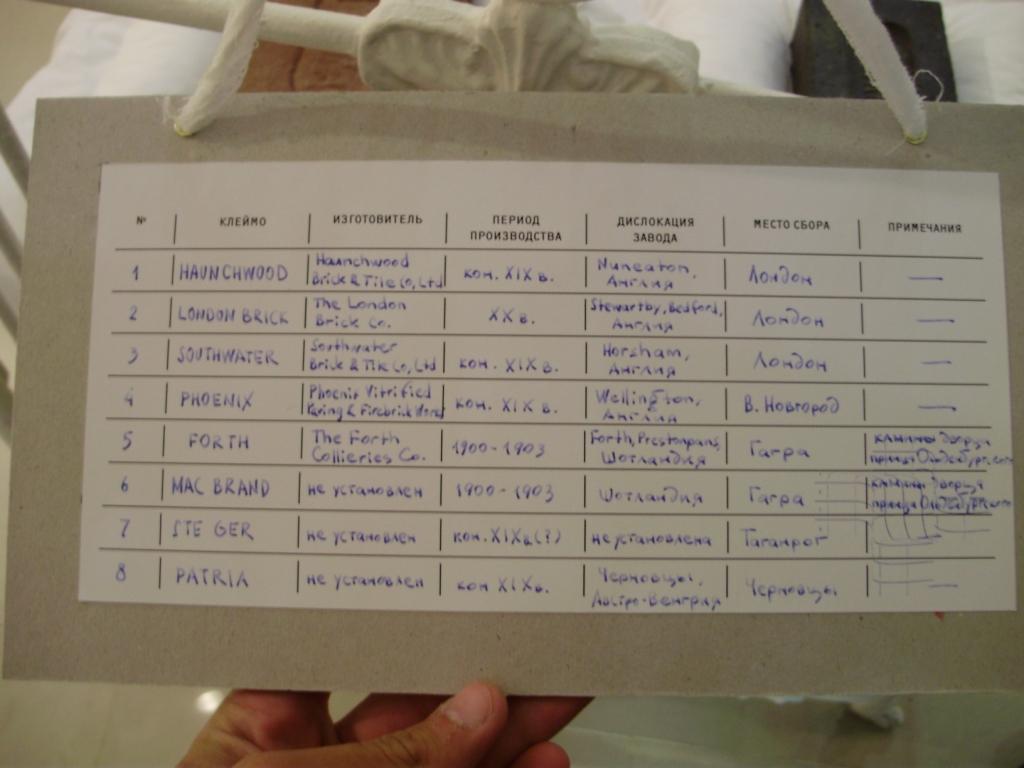 № КЛЕЙМО ИЗГОТОВИТЕЛЬ ПЕРИОД ПРОИЗВОДСТВА ДИСЛОКАЦИЯ ЗАВОДА МЕСТО СБОРА ПРИМЕЧАНИЯ
1 HAUNCHWOOD Haunchwood Brick & Tile Co, Ltd кон. XIX в. Nuneaton, Англия Лондон —
2 LONDON BRICK The London Brick Co. XX в. Stewartby, Bedford, Англия Лондон —
3 SOUTHWATER Southwater Brick & Tile Co, Ltd кон. XIX в. Horsham, Англия Лондон —
4 PHOENIX Phoenix Vitrified Paving & Firebrick Works кон. XIX в. Wellington, Англия В. Новгород —
5 FORTH The Forth Collieries Co. 1900-1903 Forth, Prestonpans, Шотландия Гагра камины дворца принца Ольденбургского
6 MAC BRAND не установлен 1900-1903 Шотландия Гагра камины дворца принца Ольденбургского
7 STE GER не установлен кон. XIX в (?) не установлена Таганрог —
8 PATRIA не установлен кон XIX в. Черновцы, Австро-Венгрия Черновцы —